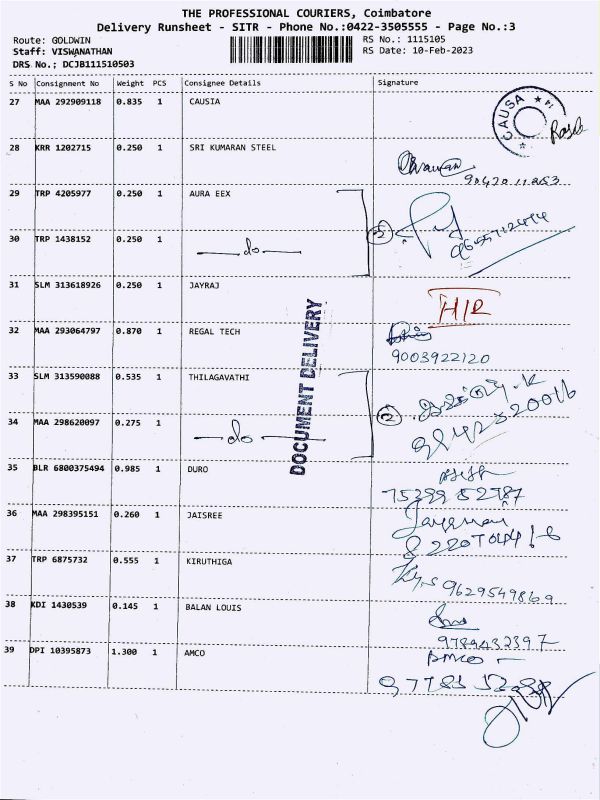 THE PROFESSIONAL COURIERS, Coimbatore
Delivery Runsheet - SITR - Phone No.:0422-3505555 - Page No.:3
Route: GOLDWIN
RS No.: 1115105
Staff: VISWANATHAN
RS Date: 10-Feb-2023
DRS No.; DCJB111510503
S No Consignment No Weight PCS Consignee Details Signature
27 MAA 292909118 0.835 1 CAUSIA
CAUSA
28 KRR 1202715 0.250 1 SRI KUMARAN STEEL
29 TRP 4205977 0.250 1 AURA EEX
30 TRP 1438152 0.250 1 —do—
31 SLM 313618926 0.250 1 JAYRAJ
H/R
32 MAA 293064797 0.870 1 REGAL TECH
9003922120
DOCUMENT DELIVERY
33 SLM 313590088 0.535 1 THILAGAVATHI
34 MAA 298620097 0.275 1 —do—
35 BLR 6800375494 0.985 1 DURO
36 MAA 298395151 0.260 1 JAISREE
37 TRP 6875732 0.555 1 KIRUTHIGA
9629549869
38 KDI 1430539 0.145 1 BALAN LOUIS
9789432397
39 DPI 10395873 1.300 1 AMCO
AMCO